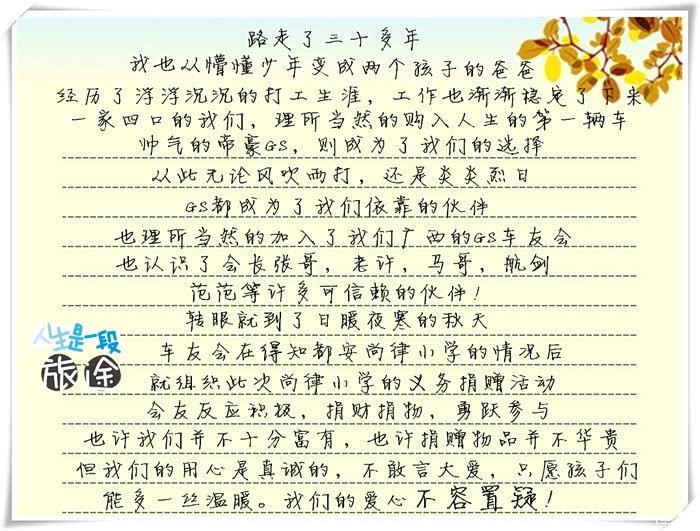 路走了三十多年
我也从懵懂少年变成两个孩子的爸爸
经历了浮浮沉沉的打工生涯，工作也渐渐稳定了下来
一家四口的我们，理所当然的购入人生的第一辆车
帅气的帝豪GS，则成为了我们的选择
从此无论风吹雨打，还是炎炎烈日
GS都成为了我们依靠的伙伴
也理所当然的加入了我们广西的GS车友会
也认识了会长张哥，老许，马哥，航剑
范范等许多可信赖的伙伴！
转眼就到了日暖夜寒的秋天
人生是一段
旅途
车友会在得知都安尚律小学的情况后
就组织此次尚律小学的义务捐赠活动
会友反应积极，捐财捐物，勇跃参与
也许我们并不十分富有，也许捐赠物品并不华贵
但我们的用心是真诚的，不敢言大爱，只愿孩子们
能多一丝温暖。我们的爱心不容置疑！